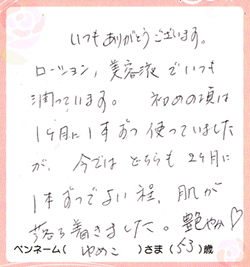 いつもありがとうございます。
ローション，美容液でいつも
潤っています。 初めの頃は
1ヶ月に1本ずつ使っていました
が、今ではどちらも2ヶ月に
1本ずつでよい程、肌が
落ち着きました。艶やか♡
ペンネーム( ゆめこ )さま(53)歳